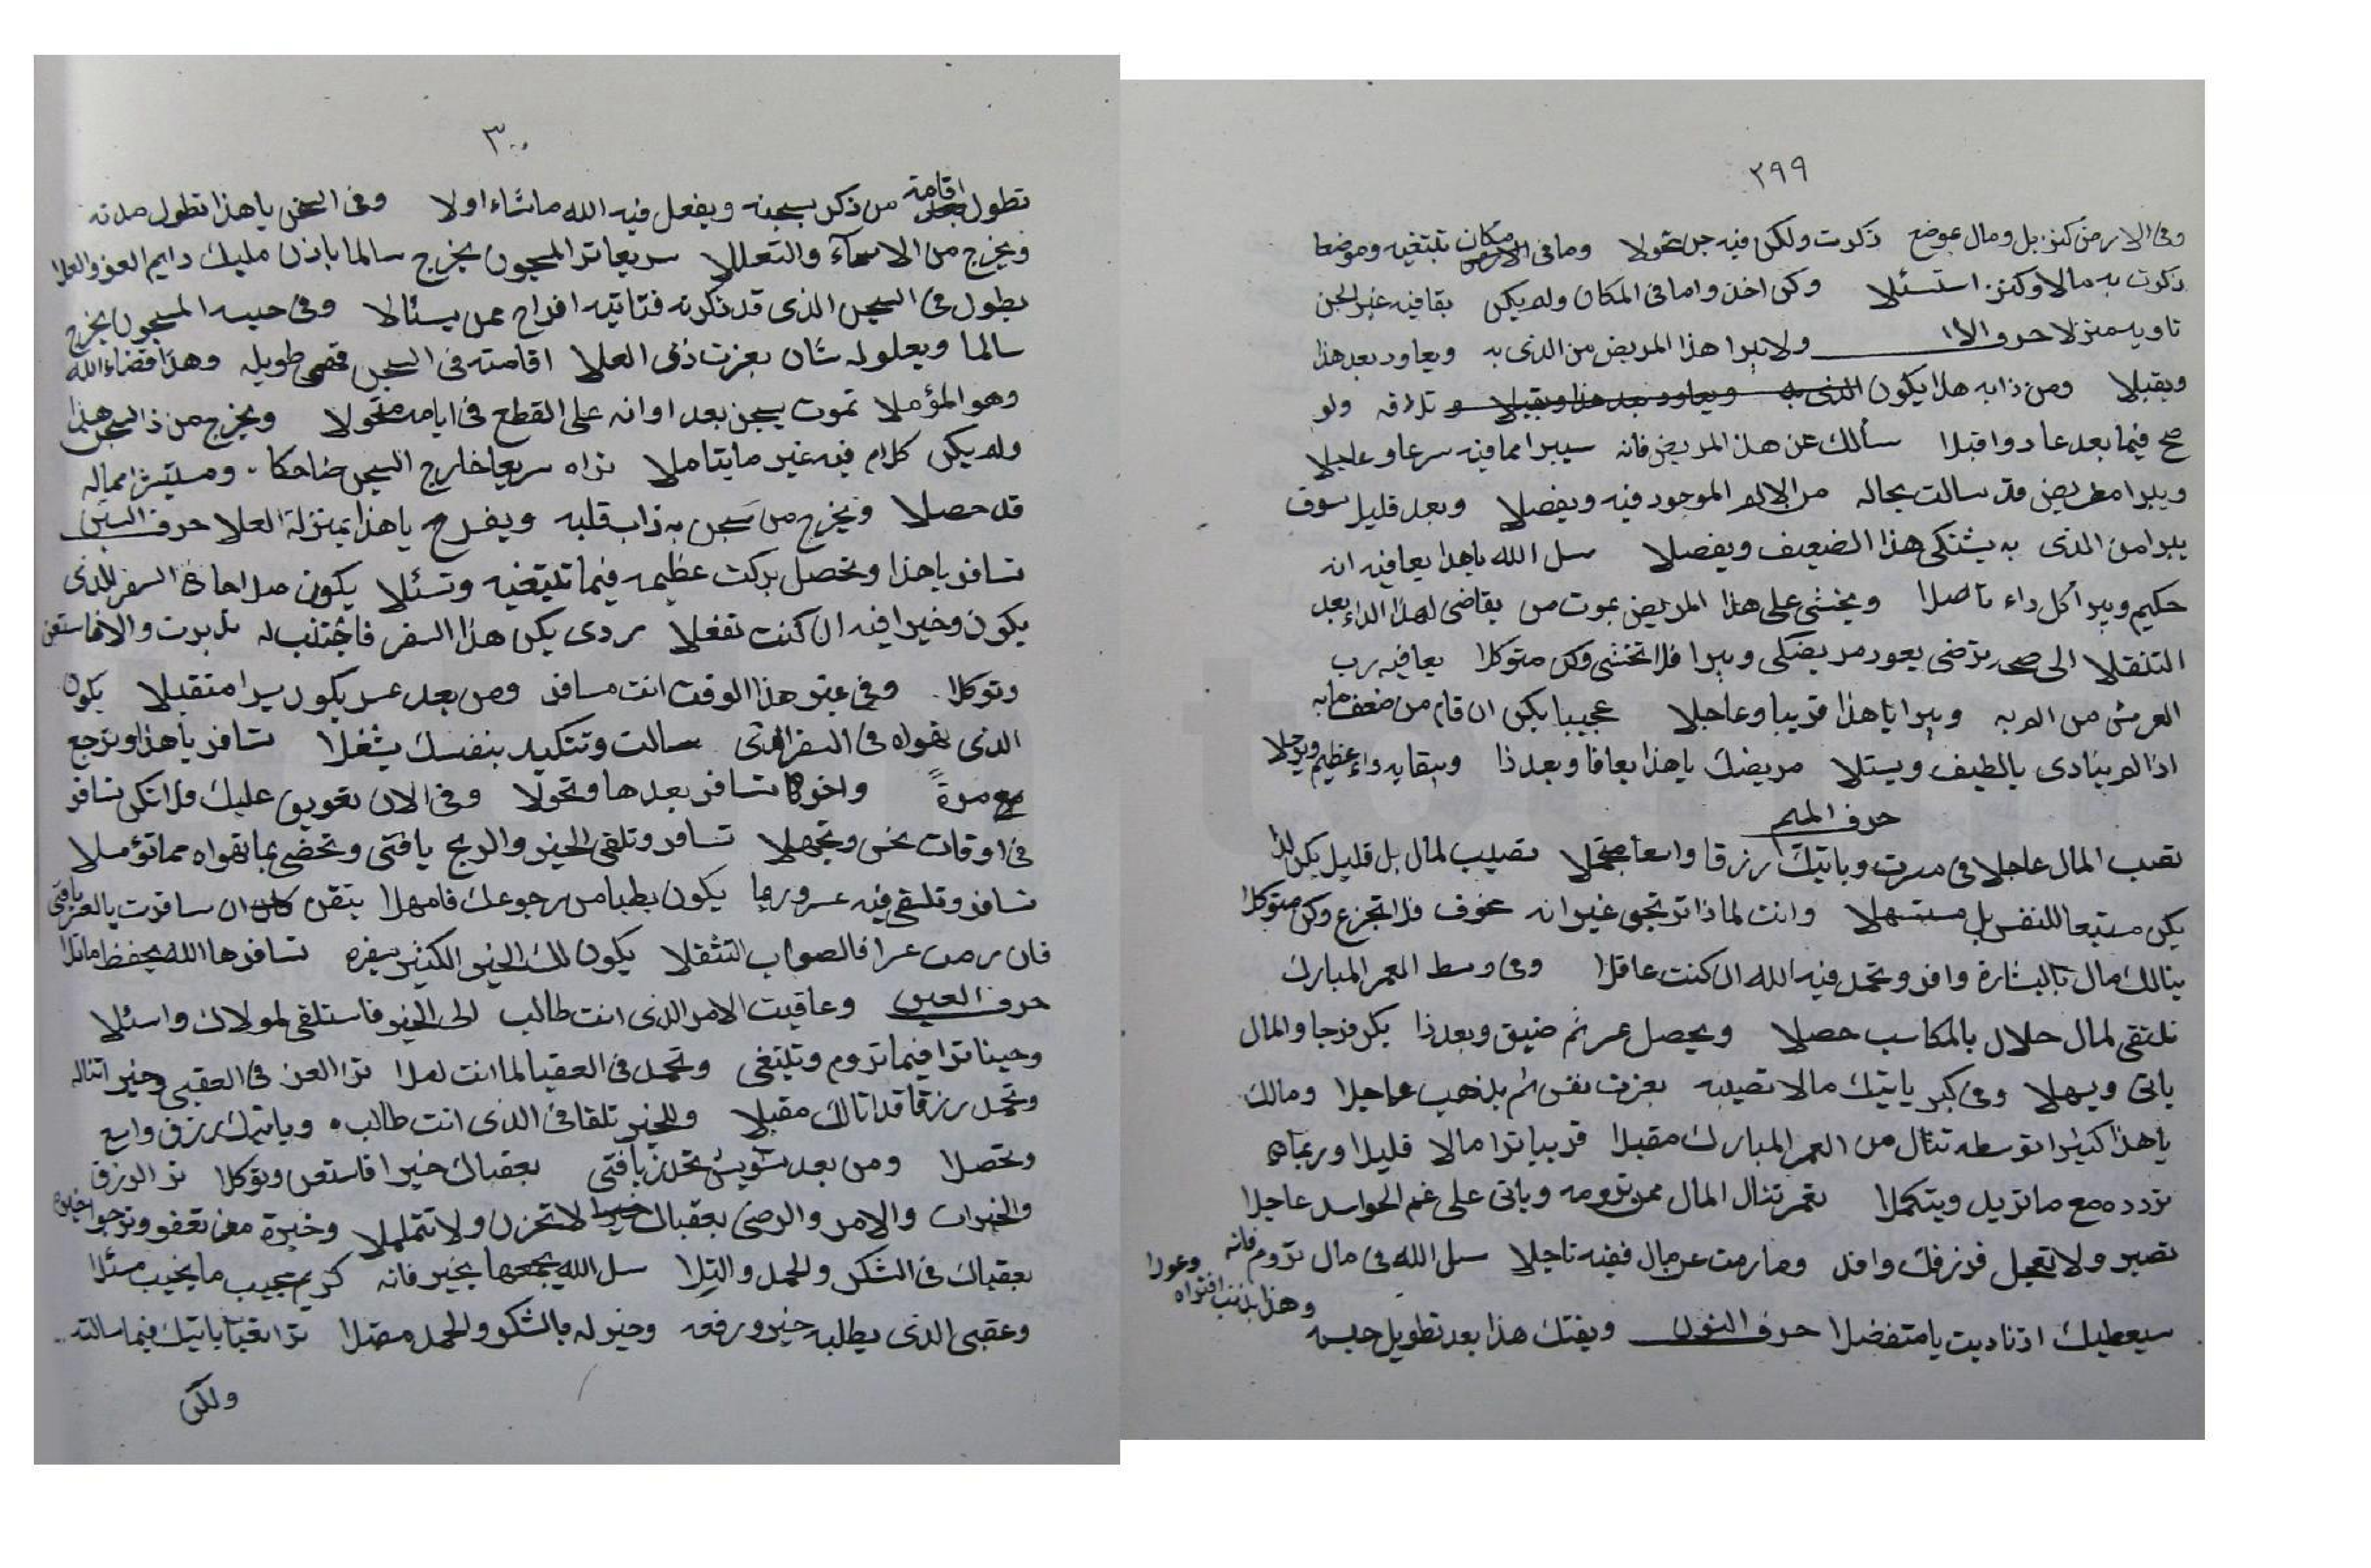 ٢٩٩
وفى الارض كنز بل ومال بموضع ذكرت ولكن فيه جن تحولا وما فى مكان تبتغيه وموضعا
ذكرت به مالا وكنز استسئلا وكن اخذ واما فى المكان ولم يكن بقا فيه غير الجن
تاويه منزلا حرف الا ولا يبرا هذا المريض من الذى به ويعاود بعد هذا
ويقبلا ومن ذا به هذا يكون تلافه ولو
صح فيما بعد عاد واقبلا سألك عن هذا المريض فانه سيبرا مما فيه سرعا وعاجلا
ويبرا مريض قد سالت بحاله من الالم الموجود فيه ويفصلا وبعد قليل سوف
يبرا من الذى به يشتكى هذا الضعيف ويفصلا سل الله ياهذا يعافيه انه
حكيم ويبرا كل داء تأصلا ويخشى على هذا المريض بموت من يقاضى لهذا الداء بعد
التنقلا الى صحه ترضى يعود مريضكى ويبرا فلا تخشى وكن متوكلا يعافيه رب
العرش من الم به ويبرا ياهذا قريبا وعاجلا عجيبا يكن ان قام من ضعف ما به
اذا لم ينادى يالطيف ويسئلا مريضك ياهذا يعافا وبعد ذا ويبقا به داء عظيم ويوجلا
حرف الميم
تصب المال عاجلا فى مسرت وياتيك رزقا واسعا تصيب لمال بل قليل يكن لذا
يكن متبعا للنفس بل مستهلا وانت لماذا ترتجى غير انه مخوف فلا تجزع وكن متوكلا
ينالك مال بالبشارة وافر وتحمد فيه الله ان كنت عاقلا وفى وسط العمر المبارك
تلتقى لمال حلال بالمكاسب حصلا ويحصل عسر ثم ضيق وبعد ذا يكن فرجا والمال
ياتى ويسهلا وفى كبر ياتيك مالا تصيبه بعزت نفس ثم يذهب عاجلا ومالك
ياهذا كثيرا توسطه تنال من العمر المبارك مقبلا قريبا ترا مالا قليلا وربما
تردده مع ما تريد ويتكملا نعم تنال المال ممن ترومه وياتى على غم الحواسد عاجلا
تصبر ولا تعجل فرزقك وافد وما رمت عن مال ففيه تاجلا سل الله فى مال تروم فانه وعولا
سيعطيك اذ ناديت يا متفضلا حرف النون ويفتك هذا بعد تطويل حبسه وهذا بذنب افتراه
٣٠٠
تطول اقامة من ذكر بسجنه ويفعل فيه الله ما شاء اولا وفى السجن ياهذا تطول مدته
ويخرج من الاسآء والتعللا سريعا ترا المسجون يخرج سالما باذن مليك دايم العز والعلا
يطول فى السجن الذى قد ذكرته فتاتيه افراح ممن يسئلا وفى حبسه المسجون يخرج
سالما ويعلو له شان بعزت ذى العلا اقامته فى السجن فهى طويله وهذا قضاء الله
وهو المؤملا تموت بسجن بعد اوانه على القطع فى ايامه متحولا ويخرج من ذا السجن هذا
ولم يكن كلام فيه غير ما يتاملا تراه سريعا خارج السجن ضاحكا ومستبشرا مما له
قد حصلا ويخرج من سجن به ذاب قلبه ويفرح ياهذا بمنزلة العلا حرف السين
تسافر ياهذا وتحصل بركت عظيمه فيما تبتغيه وتسئلا يكون صلاحا ذا السفر للذى
يكون وخيرا فيه ان كنت تفعلا ردى يكن هذا السفر فاجتنب له تدبرت والا فاستعن
وتوكلا وفى غير هذا الوقت انت مسافر ومن بعد عسر يكون يسرا متقبلا يكون
الذى تهواه فى السفر الذى سالت وتتكيد بنفسك يشغلا تسافر ياهذا وترجع
مع مرة واخرى تسافر بعدها وتحولا وفى الان تعويق عليك فلا تكن تسافر
فى اوقات نحس وتجهلا تسافر وتلقى الخير والربح يافتى وتحضى بما تهواه مما تؤملا
تسافر وتلتقى فيه عسر وربما يكون بطيا من رجوعك فامهلا تيقن ان سافرت بالعز يافتى
فان رمت عزا فالصواب التنقلا يكون لك الخير الكثير بسفره تسافرها الله يحفظ ما تلا
حرف العين وعاقبت الامر الذى انت طالب الى الخير فاستلقى لمولاك واسئلا
وحينا ترا فيما تروم وتبتغى وتحمد فى العقبا لما انت له ترا العز فى العقبى وخير تناله
وتحمد رزقا قد اتا لك مقبلا وللخير تلقا فى الذى انت طالبه وياتيك رزق واسع
وتحصلا ومن بعد تشويش تحدث يافتى بعقباك خيرا فاستعن وتوكلا ترا الرزق
والخيرات والامر والرضى بعقباك لا تحزن ولا تتململا وخيرة من تعفو وترجوا خيره
بعقباك فى الشكر والحمد والتلا سل الله يجمعها بخير فانه كريم مجيب ما يخيب مسئلا
وعقبى الذى يطلبه خير ورفعه وخير له بالشكر والحمد مفضلا ترا تعبا ياتيك فيما سالته
ولكن